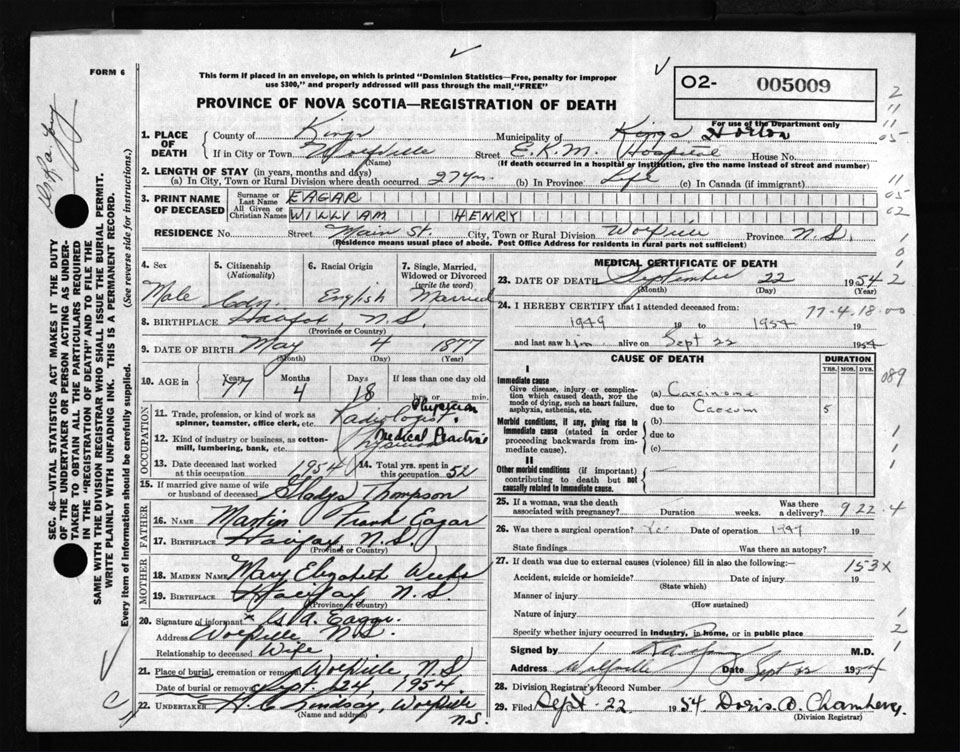 FORM 6
This form if placed in an envelope, on which is printed "Dominion Statistics—Free, penalty for improper
use $300," and properly addressed will pass through the mail "FREE"
O2- 005009
For use of the Department only
PROVINCE OF NOVA SCOTIA—REGISTRATION OF DEATH
1. PLACE OF DEATH County of Kings Municipality of Kings Horton
If in City or Town Wolfville (Name) Street E.K.M. Hospital House No.
(If death occurred in a hospital or institution, give the name instead of street and number)
2. LENGTH OF STAY (in years, months and days)
(a) In City, Town or Rural Division where death occurred 27 yrs. (b) In Province Life (c) In Canada (if immigrant)
3. PRINT NAME OF DECEASED Surname or Last Name EAGAR
All Given or Christian Names WILLIAM HENRY
RESIDENCE No. Street Main St. City, Town or Rural Division Wolfville Province N.S.
(Residence means usual place of abode. Post Office Address for residents in rural parts not sufficient)
4. Sex Male
5. Citizenship (Nationality) Cdn.
6. Racial Origin English
7. Single, Married, Widowed or Divorced (write the word) Married
8. BIRTHPLACE Halifax N.S. (Province or Country)
9. DATE OF BIRTH May (Month) 4 (Day) 1877 (Year)
10. AGE in Years 77 Months 4 Days 18 If less than one day old hrs. or min.
OCCUPATION
11. Trade, profession, or kind of work as spinner, teamster, office clerk, etc. Radiologist Physician
12. Kind of industry or business, as cotton-mill, lumbering, bank, etc. Medical Practice
13. Date deceased last worked at this occupation 1954
14. Total yrs. spent in this occupation 52
15. If married give name of wife or husband of deceased Gladys Thompson
FATHER
16. NAME Martin Frank Eagar
17. BIRTHPLACE Halifax N.S. (Province or Country)
MOTHER
18. MAIDEN NAME Mary Elizabeth Weeks
19. BIRTHPLACE Halifax N.S. (Province or Country)
20. Signature of informant A. Eagar
Address Wolfville N.S.
Relationship to deceased Wife
21. Place of burial, cremation or removal Wolfville N.S.
Date of burial or removal Sept. 24, 1954
22. UNDERTAKER H. C. Lindsay, Wolfville N.S.
(Name and address)
MEDICAL CERTIFICATE OF DEATH
23. DATE OF DEATH September (Month) 22 (Day) 1954 (Year)
24. I HEREBY CERTIFY that I attended deceased from:
1949 19 to 1954 19
and last saw him alive on Sept 22 1954
77-4-18-00
CAUSE OF DEATH
DURATION
YRS. MOS. DYS.
I
Immediate cause
Give disease, injury or complication which caused death, NOT the mode of dying, such as heart failure, asphyxia, asthenia, etc.
(a) Carcinoma
due to Caecum 5
Morbid conditions, if any, giving rise to immediate cause (stated in order proceeding backwards from immediate cause).
(b)
due to
(c)
II
Other morbid conditions (if important) contributing to death but not causally related to immediate cause.
089
25. If a woman, was the death associated with pregnancy? Duration weeks. Was there a delivery?
922.4
26. Was there a surgical operation? Yes Date of operation 1949 19
State findings Was there an autopsy?
27. If death was due to external causes (violence) fill in also the following:— 153X
Accident, suicide or homicide? (State which) Date of injury 19
Manner of injury (How sustained)
Nature of injury
Specify whether injury occurred in industry, in home, or in public place
Signed by M.D.
Address Wolfville Date Sept 22 1954
28. Division Registrar's Record Number
29. Filed Sept-22 1954 Doris D. Chambers
(Division Registrar)
SEC. 46—VITAL STATISTICS ACT MAKES IT THE DUTY
OF THE UNDERTAKER OR PERSON ACTING AS UNDER-
TAKER TO OBTAIN ALL THE PARTICULARS REQUIRED
IN THE "REGISTRATION OF DEATH" AND TO FILE THE
SAME WITH THE DIVISION REGISTRAR WHO SHALL ISSUE THE BURIAL PERMIT.
WRITE PLAINLY WITH UNFADING INK. THIS IS A PERMANENT RECORD.
Every item of information should be carefully supplied. (See reverse side for instructions.)